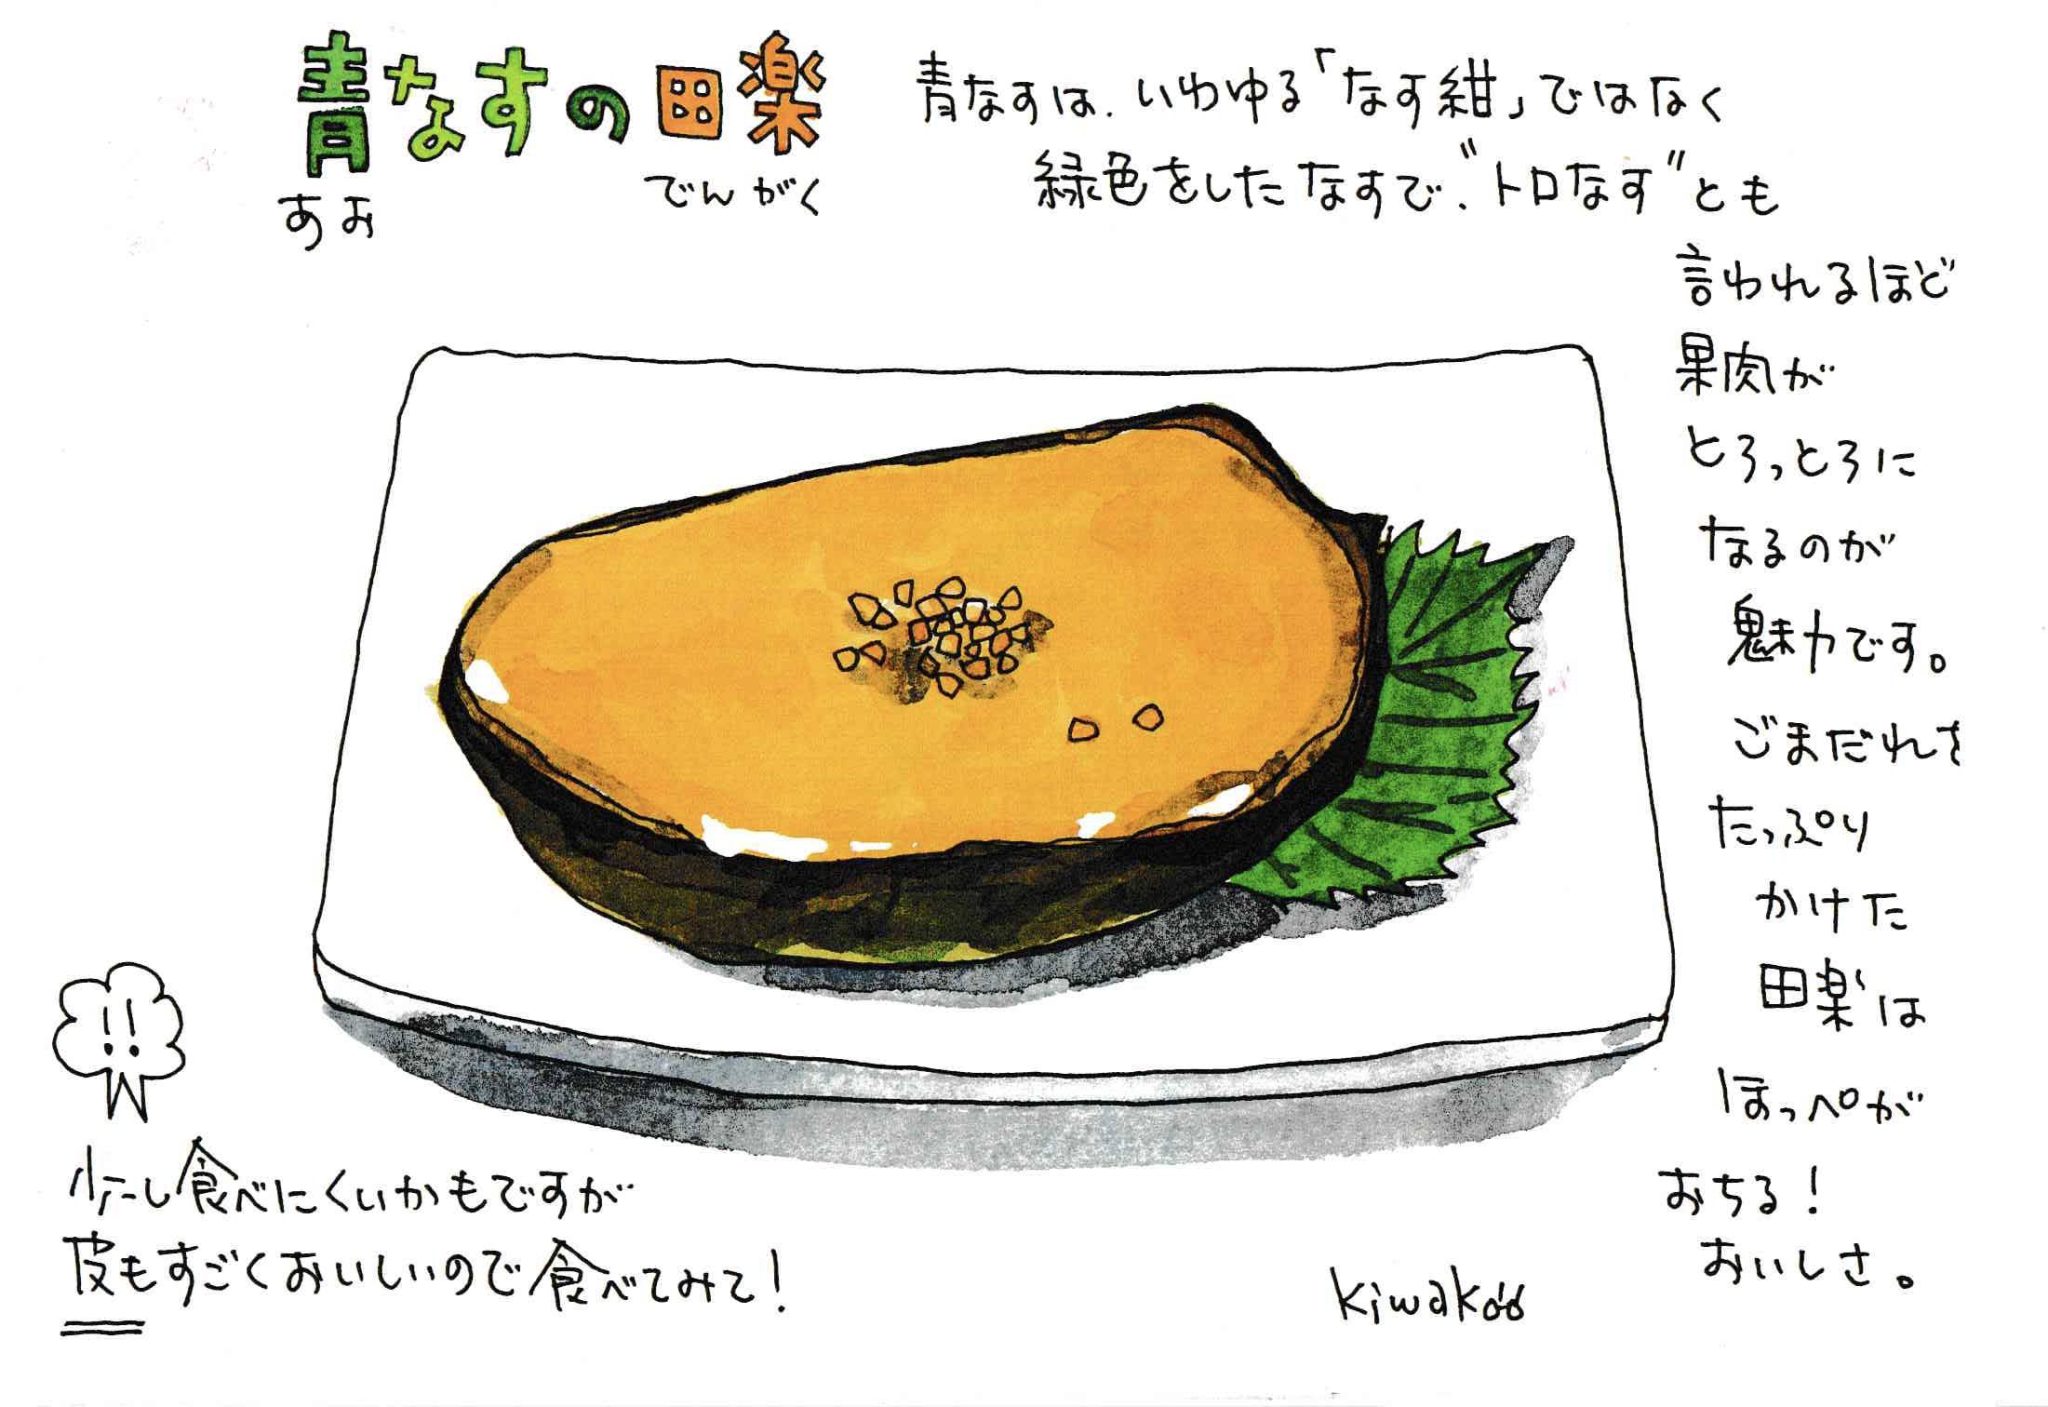 青なすの田楽
あお
でんがく
青なすは、いわゆる「なす紺」ではなく
緑色をしたなすで、"トロなす"とも
言われるほど
果肉が
とろっとろに
なるのが
魅力です。
ごまだれを
たっぷり
かけた
田楽は
ほっぺが
おちる！
おいしさ。
!!
少し食べにくいかもですが
皮もすごくおいしいので食べてみて！
kiwakoo